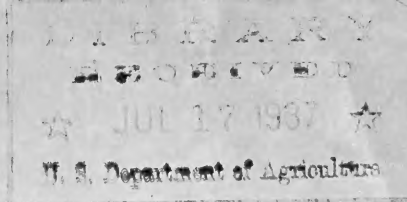 LIBRARY
RECEIVED
☆ JUL 17 1937 ☆
U. S. Department of Agriculture